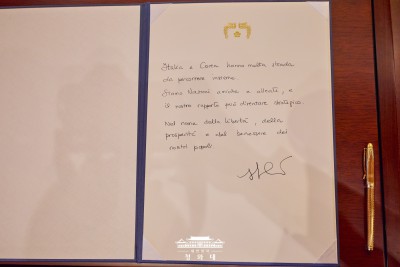 Italia e Corea hanno molta strada
da percorrere insieme.
Siamo Nazioni amiche e alleate, e
il nostro rapporto può diventare strategico.
Nel nome della libertà, della
prosperità e del benessere dei
nostri popoli.
대한민국
청와대